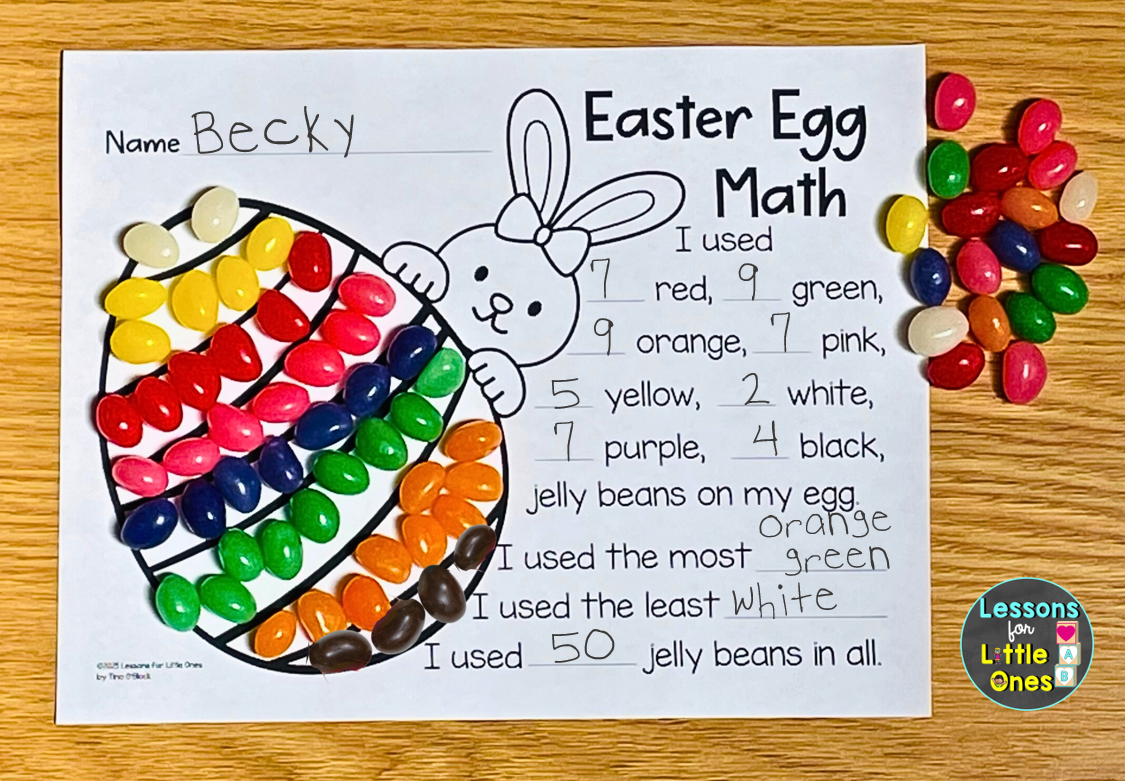 Name Becky
Easter Egg
Math
I used
7 red, 9 green,
9 orange, 7 pink,
5 yellow, 2 white,
7 purple, 4 black,
jelly beans on my egg.
orange
I used the most green
I used the least white
I used 50 jelly beans in all.
©2023 Lessons for Little Ones
by Tina O'Block
Lessons
for
Little
Ones
A
B